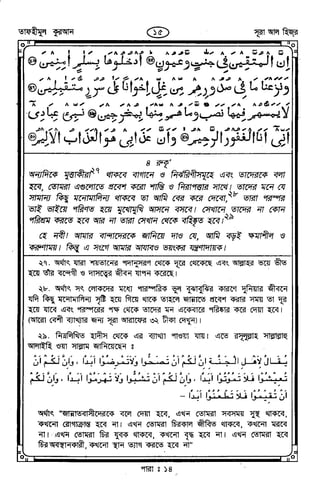 তাফহীমুল কুরআন ১৫ সূরা আল হিজর
إِنَّ الْمُتَّقِينَ فِي جَنَّتٍ وَعُيُونٍ ﴿٤٥﴾ ادْخُلُوهَا بِسَلَمٍ آمِنِينَ ﴿٤٦﴾
وَنَزَعْنَا مَا فِي صُدُورِهِمْ مِنْ غِلٍّ إِخْوَانًا عَلَى سُرُرٍ مُتَقَبِلِينَ ﴿٤٧﴾
لَا يَمَسُّهُمْ فِيهَا نَصَبٌ وَمَا هُمْ مِنْهَا بِمُخْرَجِينَ ﴿٤٨﴾ نَبِّئْ عِبَادِي
أَنِّي أَنَا الْغَفُورُ الرَّحِيمُ ﴿٤٩﴾ وَأَنَّ عَذَابِي هُوَ الْعَذَابُ الْأَلِيمُ ﴿٥٠﴾
৪ রুকূ'
অন্যদিকে মুত্তাকীরা২৭ থাকবে বাগানে ও নির্ঝরিণীসমূহে এবং তাদেরকে বলা
হবে, তোমরা এগুলোতে প্রবেশ করো শান্তি ও নিরাপত্তার সাথে। তাদের মনে যে
সামান্য কিছু মনোমালিন্য থাকবে তা আমি বের করে দেবো,২৮ তারা পরস্পর
ভাই ভাইয়ে পরিণত হয়ে মুখোমুখি আসনে বসবে। সেখানে তাদের না কোন
পরিশ্রম করতে হবে আর না তারা সেখান থেকে বহিষ্কৃত হবে।২৯
হে নবী! আমার বান্দাদেরকে জানিয়ে দাও যে, আমি বড়ই ক্ষমাশীল ও
করুণাময়। কিন্তু এ সংগে আমার আযাবও ভয়ংকর যন্ত্রণাদায়ক।
২৭. অর্থাৎ যারা শয়তানের পদানুসরণ থেকে দূরে থেকেছে এবং আল্লাহর ভয়ে ভীত
হয়ে তাঁর বন্দেগী ও দাসত্বের জীবন যাপন করেছে।
২৮. অর্থাৎ সৎ লোকদের মধ্যে পারস্পরিক ভুল বুঝাবুঝির কারণে দুনিয়ার জীবনে
যদি কিছু মনোমালিন্য সৃষ্টি হয়ে গিয়ে থাকে তাহলে জান্নাতে প্রবেশ করার সময় তা দূর
হয়ে যাবে এবং পরস্পরের পক্ষ থেকে তাদের মন একেবারে পরিষ্কার করে দেয়া হবে।
(আরো বেশী ব্যাখ্যার জন্য সূরা আরাফের ৩২ টীকা দেখুন।)
২৯. নিম্নলিখিত হাদীস থেকে এর ব্যাখ্যা পাওয়া যায়। এতে রসূলুল্লাহ সাল্লাল্লাহু
আলাইহি ওয়া সাল্লাম জানিয়েছেন :
يُقَالُ لِأَهْلِ الْجَنَّةِ إِنَّ لَكُمْ أَنْ تَصِحُّوا وَلَا تَمْرَضُوا أَبَدًا ، وَإِنَّ لَكُمْ أَنْ
تَعِيشُوا فَلَا تَمُوتُوا أَبَدًا ، وَإِنَّ لَكُمْ أَنْ تَشِبُّوا وَلَا تَهْرَمُوا أَبَدًا ، وَإِنَّ لَكُمْ
أَنْ تُقِيمُوا فَلَا تَظْعَنُوا أَبَدًا -
অর্থাৎ "জান্নাতবাসীদেরকে বলে দেয়া হবে, এখন তোমরা সবসময় সুস্থ থাকবে,
কখনো রোগাক্রান্ত হবে না। এখন তোমরা চিরকাল জীবিত থাকবে, কখনো মরবে
না। এখন তোমরা চির যুবক থাকবে, কখনো বৃদ্ধ হবে না। এখন তোমরা হবে
চির অবস্থানকারী, কখনো স্থান ত্যাগ করতে হবে না"
পারা : ১৪